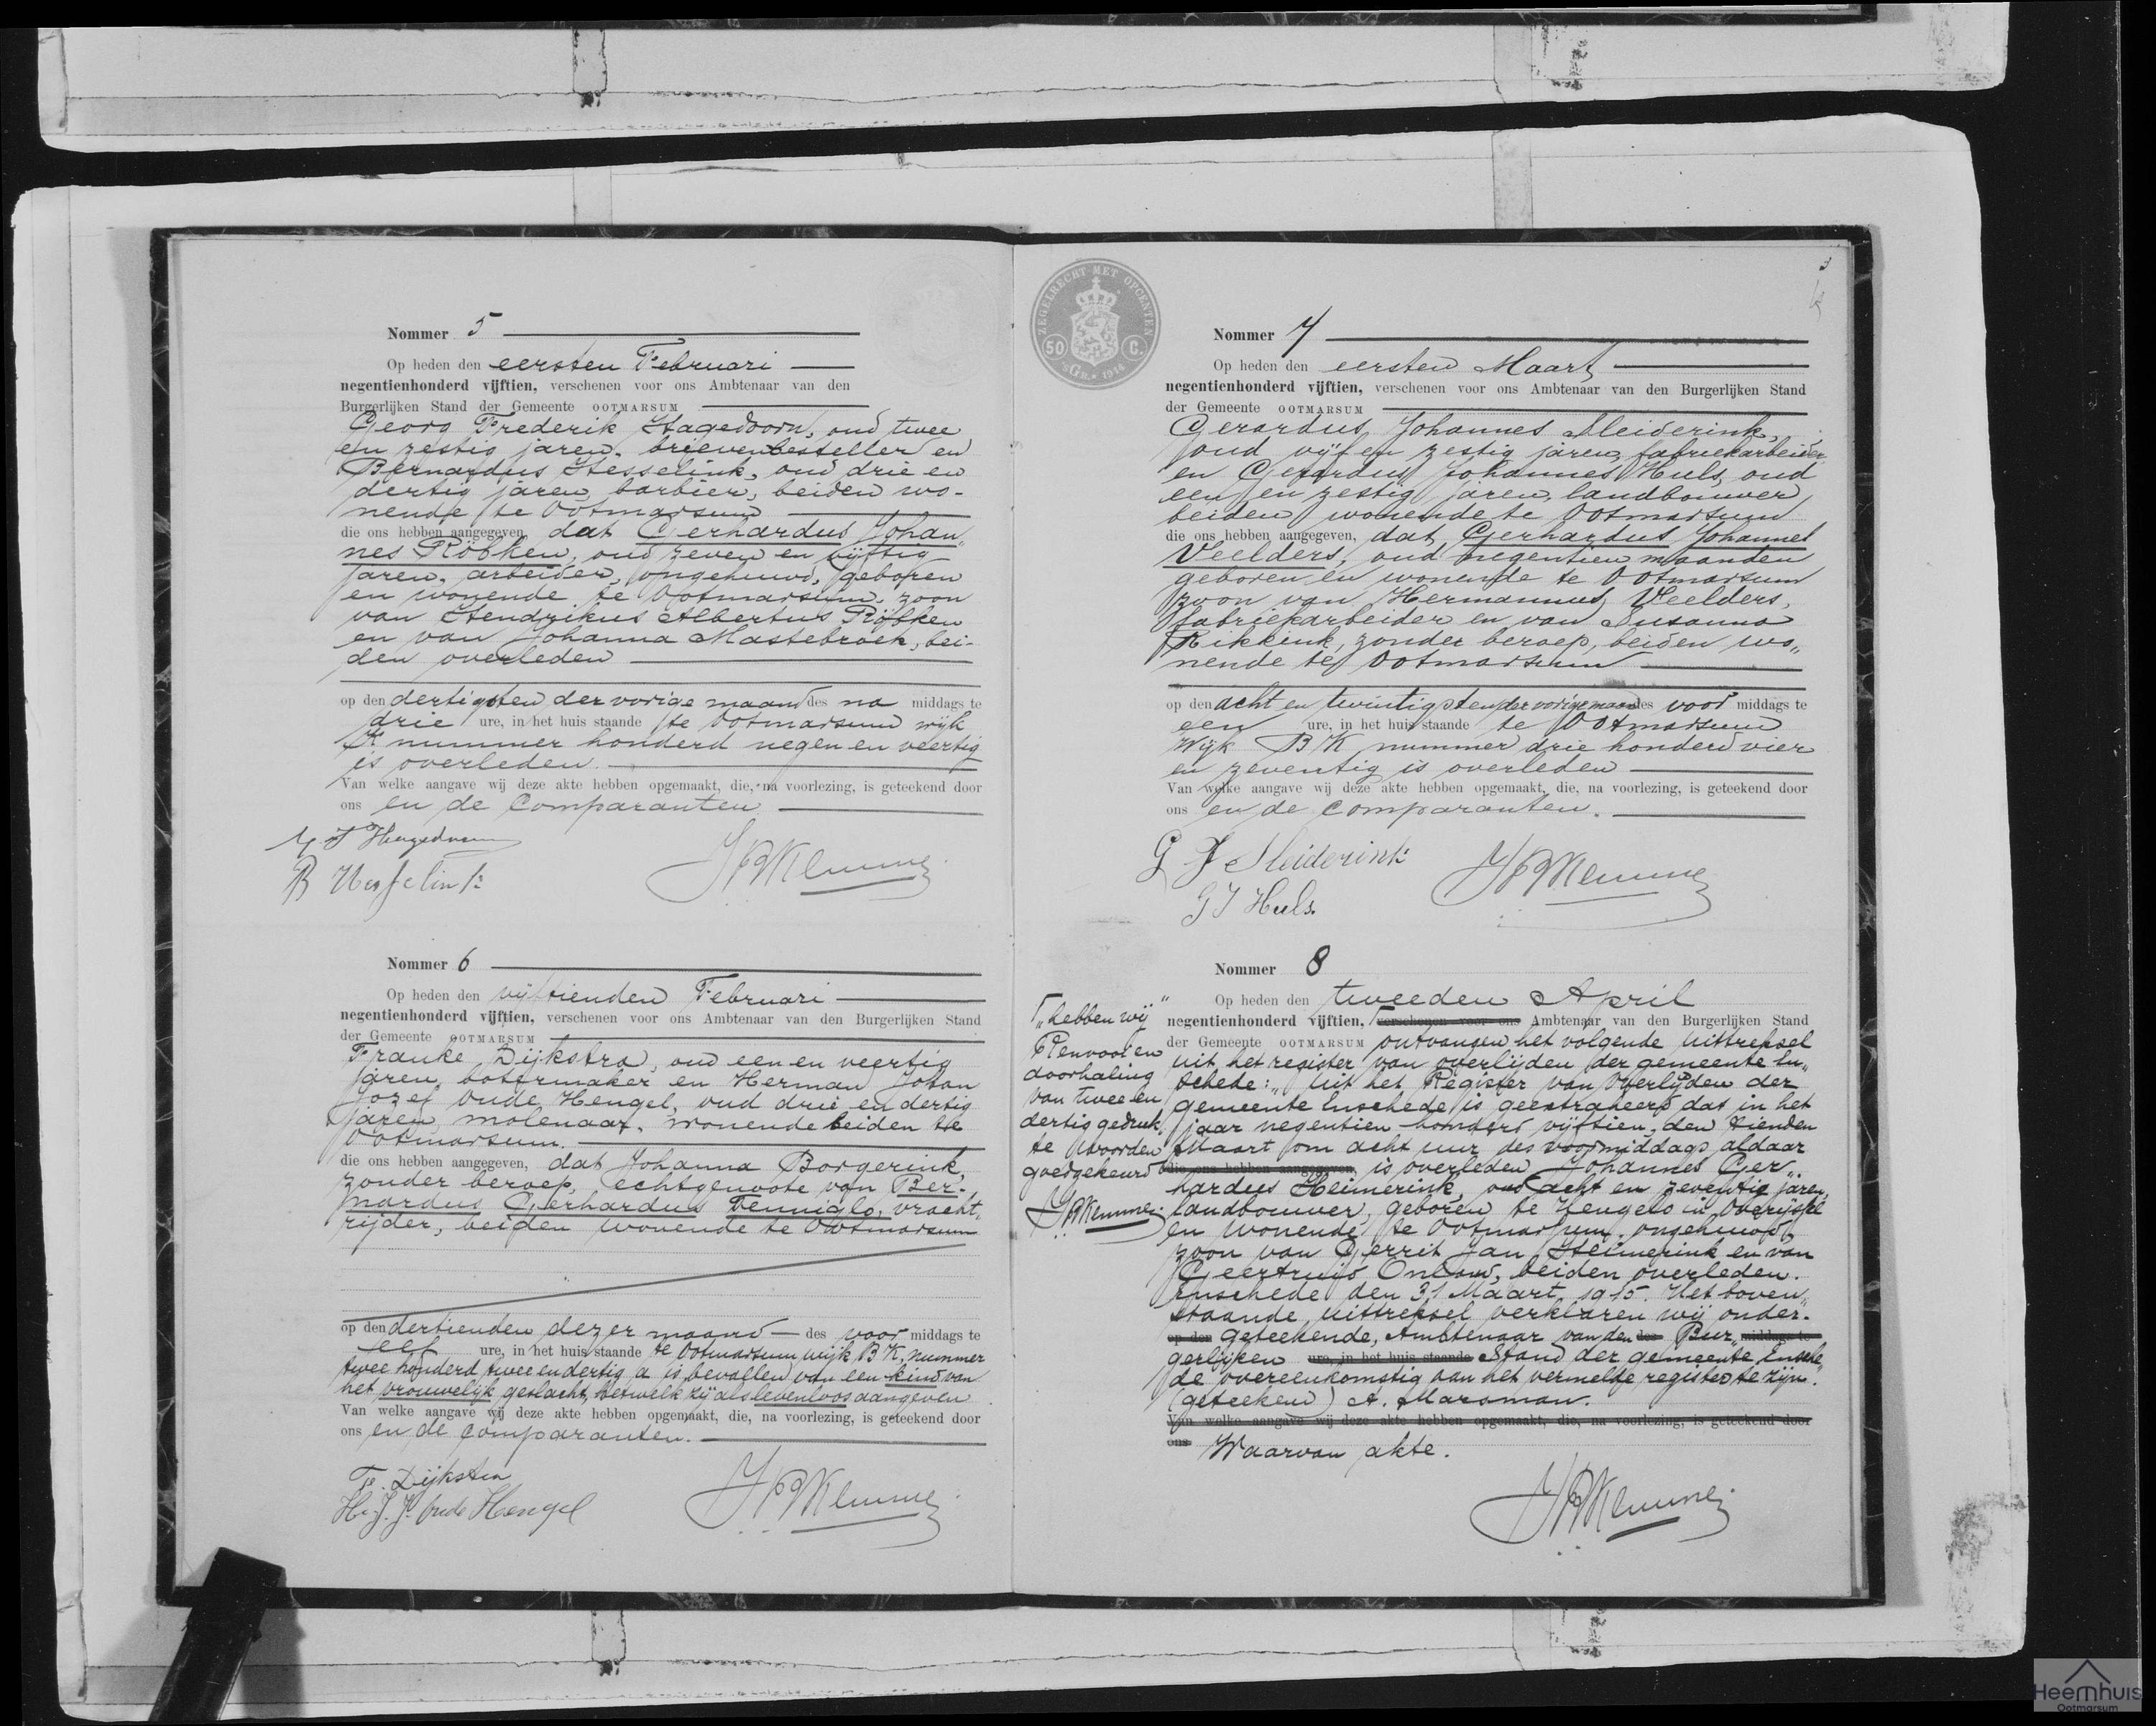 Nommer 5
Op heden den eersten Februari
negentienhonderd vijftien, verschenen voor ons Ambtenaar van den
Burgerlijken Stand der Gemeente OOTMARSUM
Georg Frederik Hagedoorn, oud twee
en zestig jaren, brievenbesteller en
Bernardus Hesselink, oud drie en
dertig jaren, barbier, beiden wo-
nende te Ootmarsum
die ons hebben aangegeven, dat Gerhardus Johan„
nes Röbken, oud zeven en vijftig
jaren, arbeider, ongehuwd, geboren
en wonende te Ootmarsum, zoon
van Hendrikus Albertus Röbken
en van Johanna Mastebroek, bei-
den overleden
op den dertigsten der vorige maand des na middags te
drie ure, in het huis staande te Ootmarsum wijk
K nummer honderd negen en veertig
is overleden.
Van welke aangave wij deze akte hebben opgemaakt, die, na voorlezing, is geteekend door
ons en de comparanten
G F Hagedoorn
B Hesselink
Nommer 6
Op heden den vijftienden Februari
negentienhonderd vijftien, verschenen voor ons Ambtenaar van den Burgerlijken Stand
der Gemeente OOTMARSUM
Franke Dijkstra, oud een en veertig
jaren, botermaker en Herman Johan
Jozef oude Hengel, oud drie en dertig
jaren, molenaar, wonende beiden te
Ootmarsum.
die ons hebben aangegeven, dat Johanna Borgerink,
zonder beroep, echtgenoote van Ber-
nardus Gerhardus Tenniglo, vracht„
rijder, beiden wonende te Ootmarsum
op den dertienden dezer maand des voor middags te
elf ure, in het huis staande te Ootmarsum wijk B K, nummer
twee honderd twee en dertig a is bevallen van een kind van
het vrouwelijk geslacht, hetwelk zij als levenloos aangeven
Van welke aangave wij deze akte hebben opgemaakt, die, na voorlezing, is geteekend door
ons en de comparanten.
F. Dijkstra
H. J. J. oude Hengel
ZEGELRECHT MET OPCENTEN
50 C.
'sGR. 1914
3
Nommer 7
Op heden den eersten Maart
negentienhonderd vijftien, verschenen voor ons Ambtenaar van den Burgerlijken Stand
der Gemeente OOTMARSUM
Gerardus Johannes Meiderink,
oud vijf en zestig jaren, fabriekarbeider
en Gerardus Johannes Huls, oud
een en zestig jaren, landbouwer
beiden wonende te Ootmarsum
die ons hebben aangegeven, dat Gerhardus Johannes
Veelders, oud negentien maanden
geboren en wonende te Ootmarsum
zoon van Hermannus Veelders,
fabriekarbeider en van Susanna
Rikkink, zonder beroep, beiden wo„
nende te Ootmarsum
op den acht en twintigsten der vorige maand des voor middags te
een ure, in het huis staande te Ootmarsum
Wijk B K nummer drie honderd vier
en zeventig is overleden
Van welke aangave wij deze akte hebben opgemaakt, die, na voorlezing, is geteekend door
ons en de comparanten.
G J Meiderink
G J Huls.
Nommer 8
Op heden den tweeden April
negentienhonderd vijftien, verschenen voor ons Ambtenaar van den Burgerlijken Stand
der Gemeente OOTMARSUM ontvangen het volgende uittreksel
uit het register van overlijden der gemeente En„
schede: „Uit het Register van Overlijden der
gemeente Enschede is geextraheerd dat in het
jaar negentien honderd vijftien, den tienden
Maart om acht uur des voormiddags aldaar
die ons hebben aangegeven, is overleden Johannes Ger„
hardus Heimerink, oud acht en zeventig jaren,
landbouwer, geboren te Hengelo in Overijssel
en wonende te Ootmarsum, ongehuwd,
zoon van Gerrit Jan Heimerink en van
Geertruid beiden overleden.
Enschede den 31 Maart 1915. Het boven„
staande uittreksel verklaren wij onder-
op den geteekende, Ambtenaar van den des Bur„ middags te
gerlijken ure, in het huis staande Stand der gemeente Ensche„
de overeenkomstig aan het vermelde register te zijn.
(geteekend) A. Marsman.
Van welke aangave wij deze akte hebben opgemaakt, die, na voorlezing, is geteekend door
ons Waarvan akte.
„hebben wij"
Renvooi en
doorhaling
van twee en
dertig gedruk„
te woorden
goedgekeurd
Heemhuis
Ootmarsum